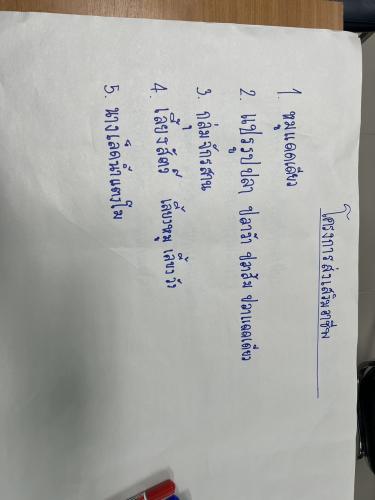 โครงการส่งเสริมอาชีพ
1. หมูแดดเดียว
2. แปรรูปปลา ปลาร้า ปลาส้ม ปลาแดดเดียว
3. กลุ่มจักรสาน
4. เลี้ยงสัตว์ เลี้ยงหมู เลี้ยงวัว
5. นางเล็ดน้ำแตงโม